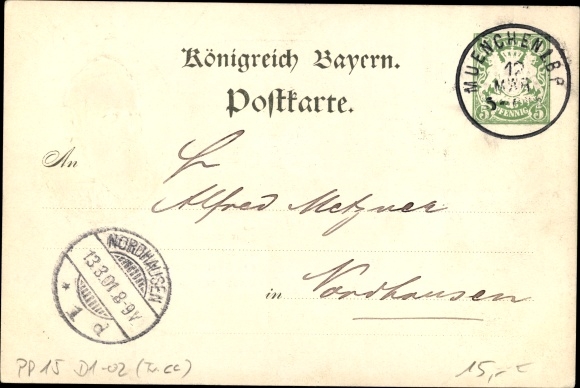 Königreich Bayern.
Postkarte.
MUENCHEN 1 B.P.
12
MÄR
5-6
5 PFENNIG 5
An
Alfred Metzner
in Nordhausen
NORDHAUSEN
13.3.01.8-9V
* 1 d
PP 15 D1-02
15,-